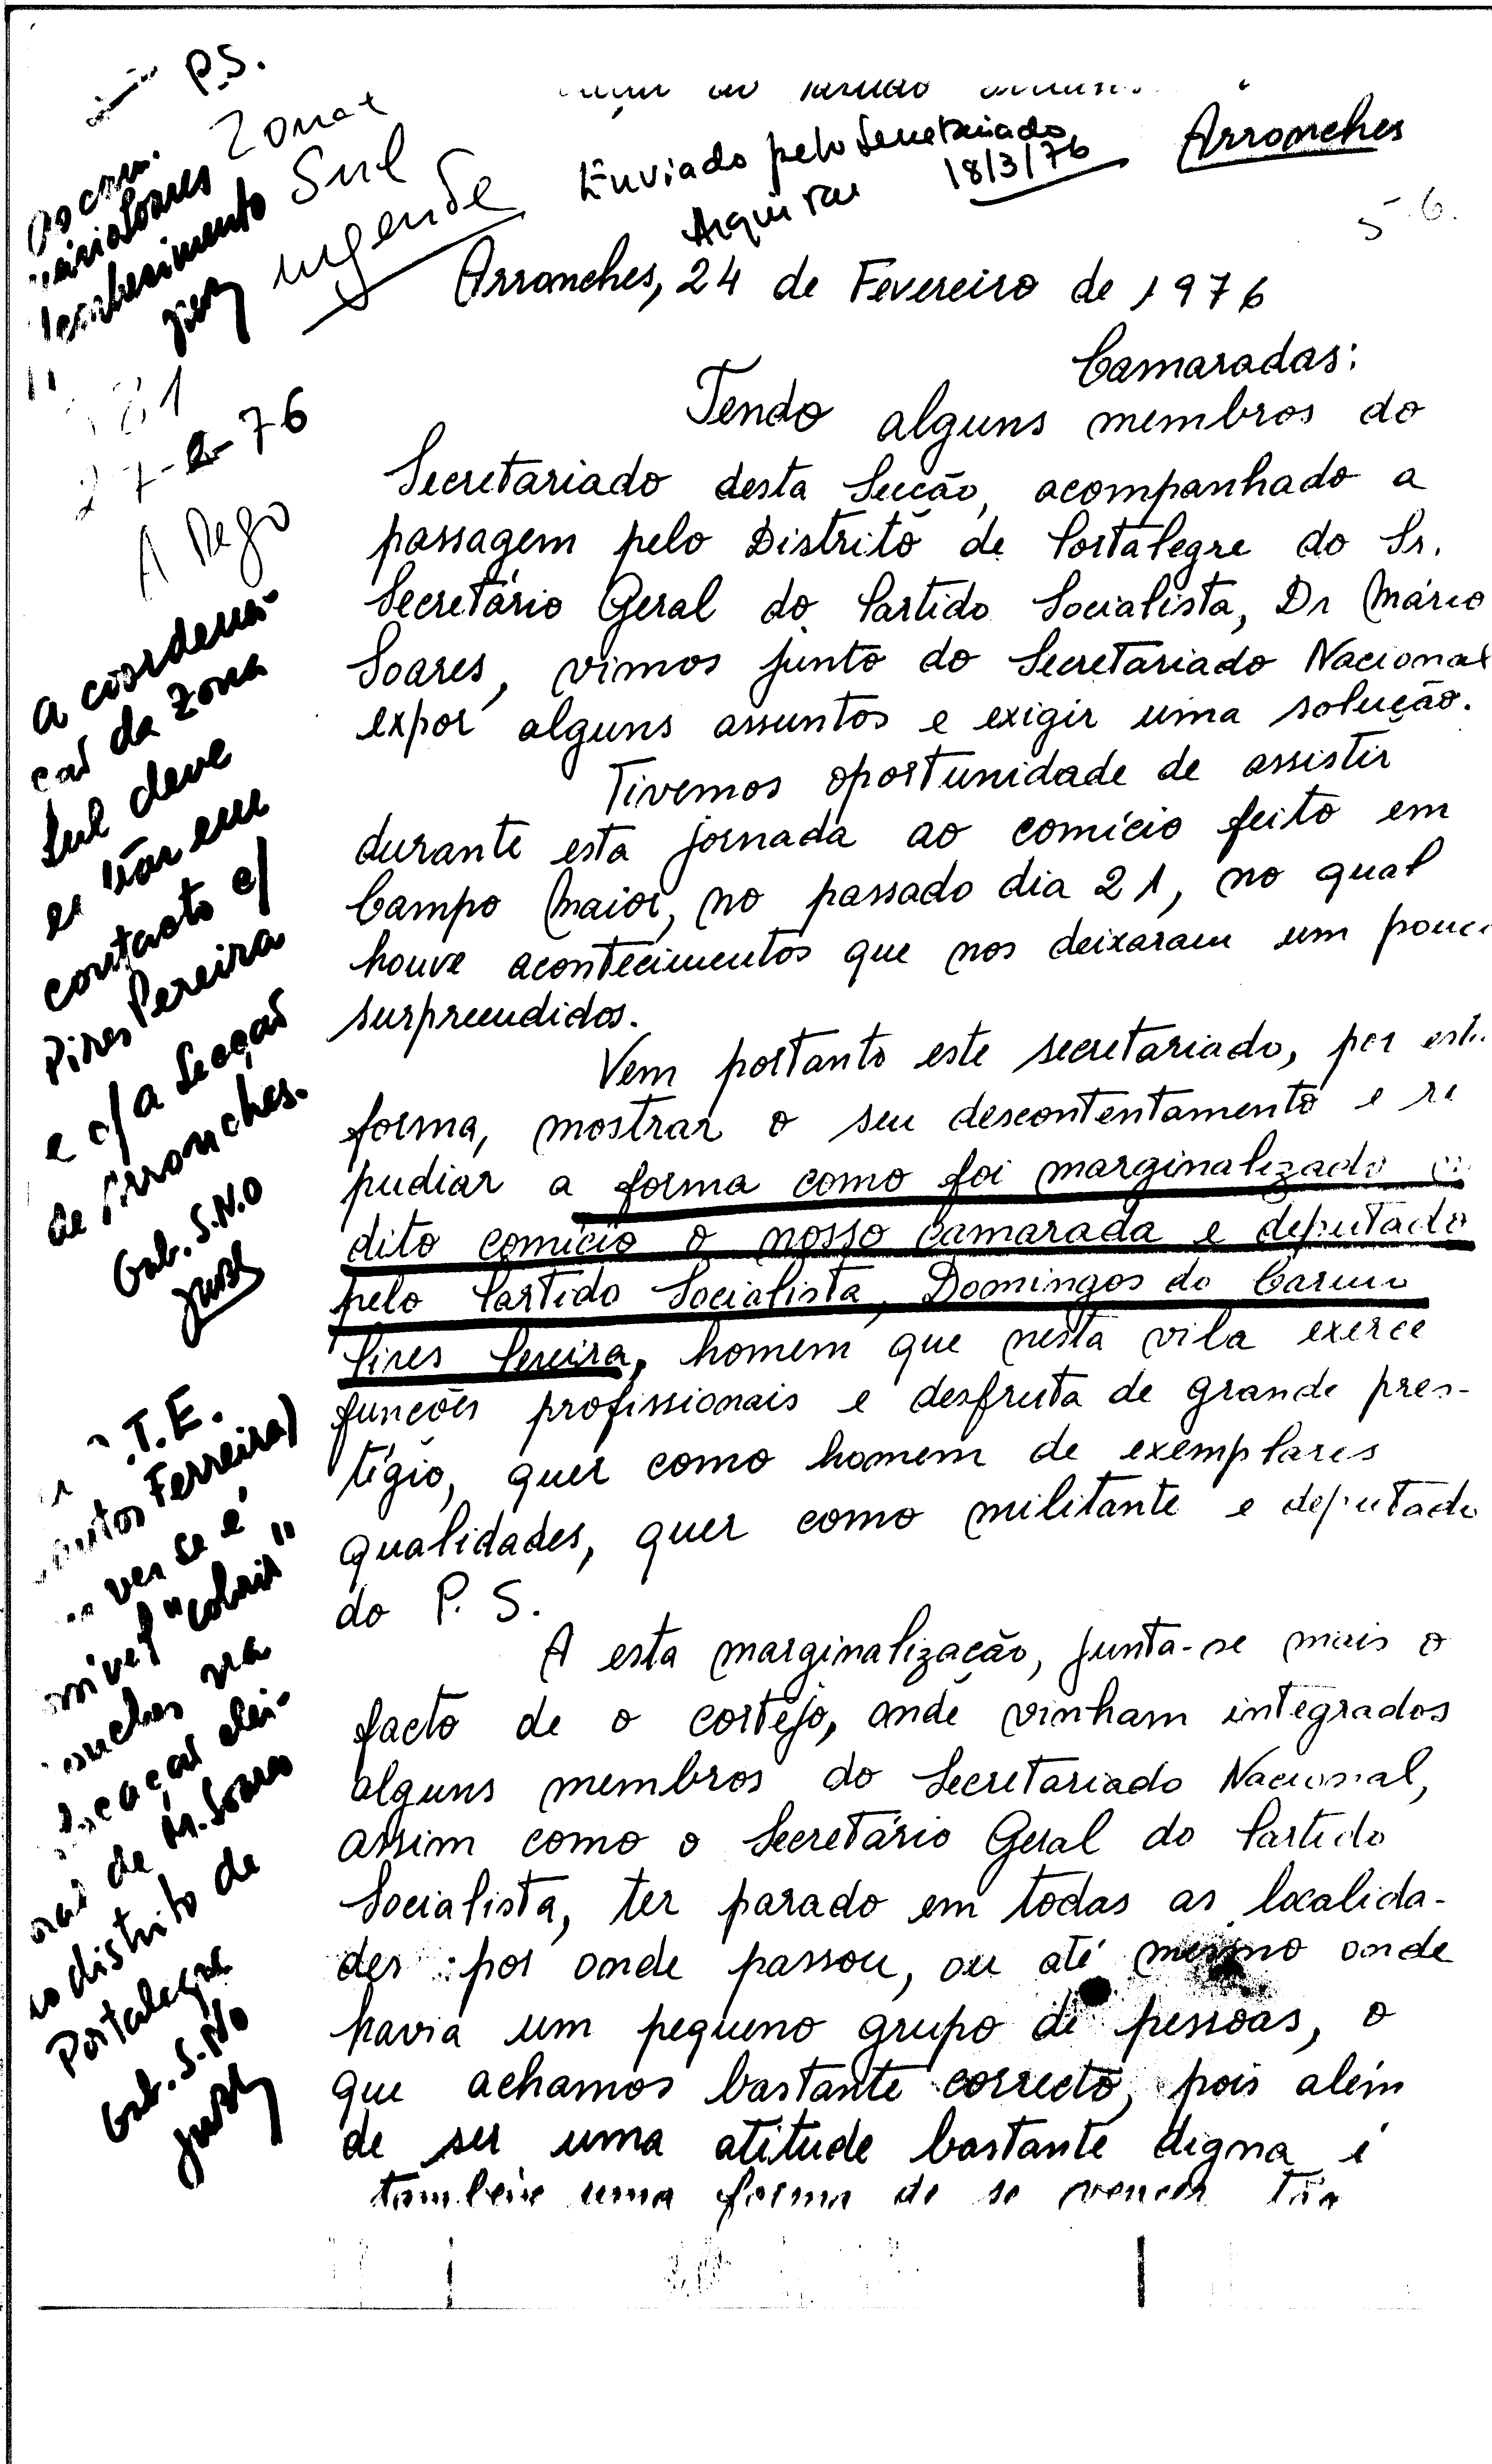 P.S.
Zona
Sul
urgente
Enviado pelo Secretariado
18/3/76
Arquivar
Arronches
5.6.
Arronches, 24 de Fevereiro de 1976
Camaradas:
Tendo alguns membros do
Secretariado desta Secção, acompanhado a
passagem pelo Distrito de Portalegre do Sr.
Secretário Geral do Partido Socialista, Dr Mário
Soares, vimos junto do Secretariado Nacional
expor alguns assuntos e exigir uma solução.
Tivemos oportunidade de assistir
durante esta jornada ao comício feito em
Campo Maior, no passado dia 21, no qual
houve acontecimentos que nos deixaram um
surpreendidos.
Vem portanto este secretariado, por
forma, mostrar o seu descontentamento e re
pudiar a forma como foi marginalizado
dito comício o nosso camarada e deputado
pelo Partido Socialista, Domingos do Carmo
Pires Pereira, homem que nesta vila exerce
funções profissionais e desfruta de grande pres-
tígio, quer como homem de exemplares
qualidades, quer como militante e deputado
do P. S.
A esta marginalização, junta-se mais o
facto de o cortejo, onde vinham integrados
alguns membros do Secretariado Nacional,
assim como o Secretário Geral do Partido
Socialista, ter parado em todas as localida-
des por onde passou, ou até mesmo onde
havia um pequeno grupo de pessoas, o
que achamos bastante correcto, pois além
de ser uma atitude bastante digna é
também uma forma de se vencer
27-2-76
A Rego
A coordena-
ção da Zona
Sul deve
entrar em
contacto c/
Pires Pereira
e c/ a Secção
de Arronches.
Gab. S.N.O
T.E.
Ferreira)
ver se é
"cobrir"
de M. Soares
distrito de
Portalegre
Gab. S.N.O